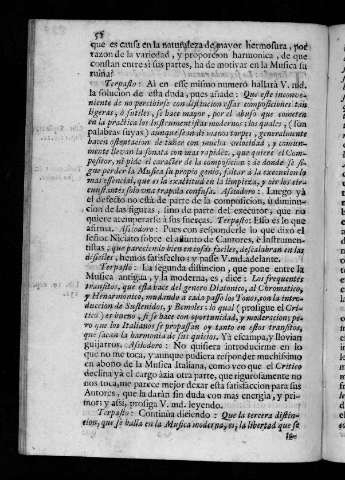 58
que es causa en la naturaleza de mayor hermosura, por
razon de la variedad, y proporcion harmonica, de que
constan entre sì sus partes, ha de motivar en la Musica su
ruìna?
Terpasto: Ai en esse mismo numero hallarà V. md.
la solucion de esta duda, pues añade: Que este inconve-
niente de no percibirse con distincion essas composiciones tan
ligeras, ò sutiles, se hace mayor, por el abuso que cometen
en la practica los Instrumentistas modernos: los quales, (son
palabras suyas) aunque sean de manos torpes, generalmente
hacen ostentacion de tañer con mucha velocidad, y comun-
mente llevan la sonata con mas rapidèz, que quiere el Com-
positor, ni pide el caracter de la composicion: de donde se si-
gue perder la Musica su proprio genio, faltar à la execucion lo
mas essencial, que es la exactitud en la limpieza, y oìr los cir-
cunstantes solo una trapala confusa. Asisodoro: Luego yà
el defecto no està de parte de la composicion, ù diminu-
cion de las figuras, sino de parte del executor, que no
quiere acomperarse à sus fuerzas. Terpasto: Esso es lo que
afirma. Asisodoro: Pues con responderle lo que dixo el
señor Niciato sobre el assunto de Cantores, è instrumen-
tistas, que pareciendo bien en cosas faciles, descalabran en las
dificiles, hemos satisfecho; y passe V. md. adelante.
Terpasto: La segunda distincion, que pone entre la
Musica antigua, y la moderna, es, dice: Los frequentes
transitos, que esta hace del genero Diatonico, al Chromatico,
y Henarmonico, mudando à cada passo los Tonos, con la intro-
duccion de Sustenidos, y Bemoles: lo qual (prosigue el Cri-
tico) es bueno, si se hace con oportunidad, y moderacion; pe-
ro que los Italianos se propassan oy tanto en estos transitos,
que sacan la harmonia de sus quicios. Yà escampa, y llovian
guijarros. Asisodoro: No quisiera introducirme en lo
que no me toca, y aunque pudiera responder muchissimo
en abono de la Musica Italiana, como veo que el Critico
declina yà el cargo àzia otra parte, que rigurosamente no
nos toca, me parece mejor dexar esta satisfaccion para sus
Autores, que la daràn sin duda con mas energia, y pri-
mor: y assi, prosiga V. md. leyendo.
Terpasto: Continúa diciendo: Que la tercera distin-
cion, que se halla en la Musica moderna, es, la libertad que se